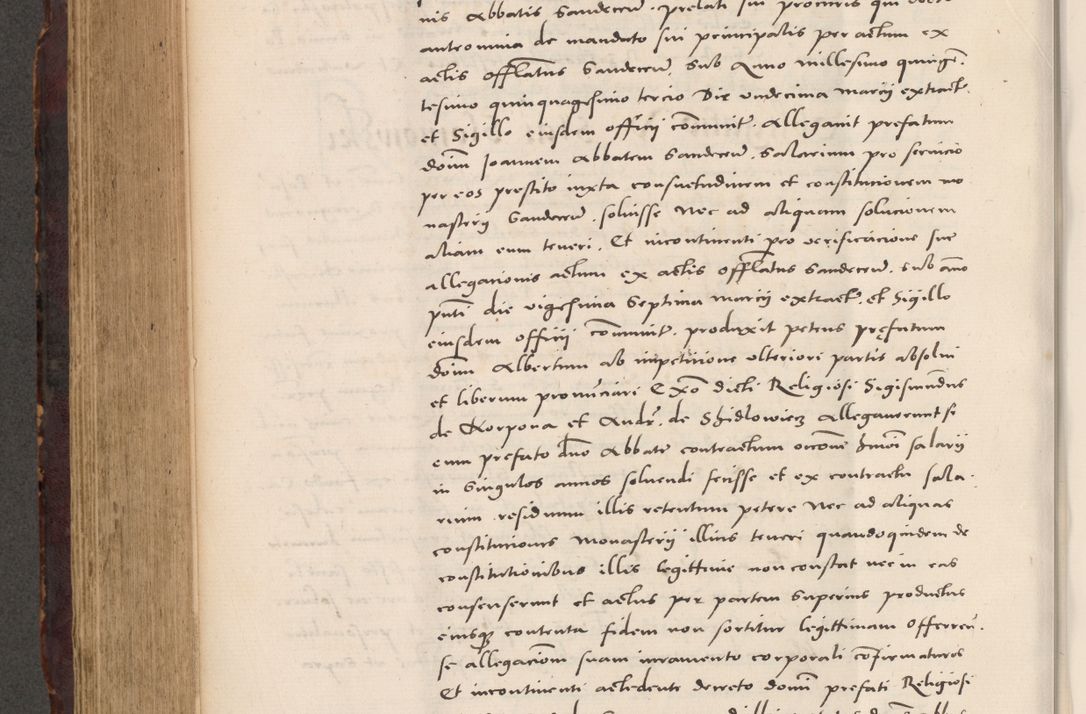 nis Abbatis Sandecen̄. prelati sui procuris qui
anteomnia de mandato sui principalis per actum ex
actis Offlatus Sandecen̄. Sub Anno millesimo quinge͞.
tesimo quinquagesimo tercio Die undecima marcij extract.
et Sigillo eiusdem officij co͞munit. Allegauit prefatum
doi͞m Joannem Abbatem Sandecen̄. Salarium pro seruicio
per eos prestito iuxta consuetudinem et constitucionem mo
nasterij Sandecen̄. soluisse Nec ad aliquam solucionem
aliam eum teneri. Et incontinenti pro verificacione sue
allegacionis actum ex actis Offlatus Sandecen̄. sub an͞o
pn͞ti die vigesima Septima marcij extract. et Sigillo
eiusdem officij co͞munit. produxit petens pręfatum
doi͞m Albertum ab impeticione vlteriori partis absolui
et liberum pronu͞ciari Exo͞ dicti Religiosi Sigismu͞ndus
de Korpona et Andr͞. de Shidlowiecz Allegauerunt se
cum prefato dn͞o Abbate contractum occo͞ne hmo͞i salarij
in Singulos annos soluendi fecisse et ex contractu sala.
rium residuum illis retentum petere Nec ad aliquas
constituciones Monasterij illius teneri quandoquidem de
constitutionibus illis legittime non constat nec in eas
consenserunt et actus per partem Superius productus
eiusq; contenta fidem non sortitur legittimam Offeren̄.
se allegacio͞m suam iuramento corporali co͞firmaturos
Et incontinenti accedente decreto doi͞ni prefati Religiosi